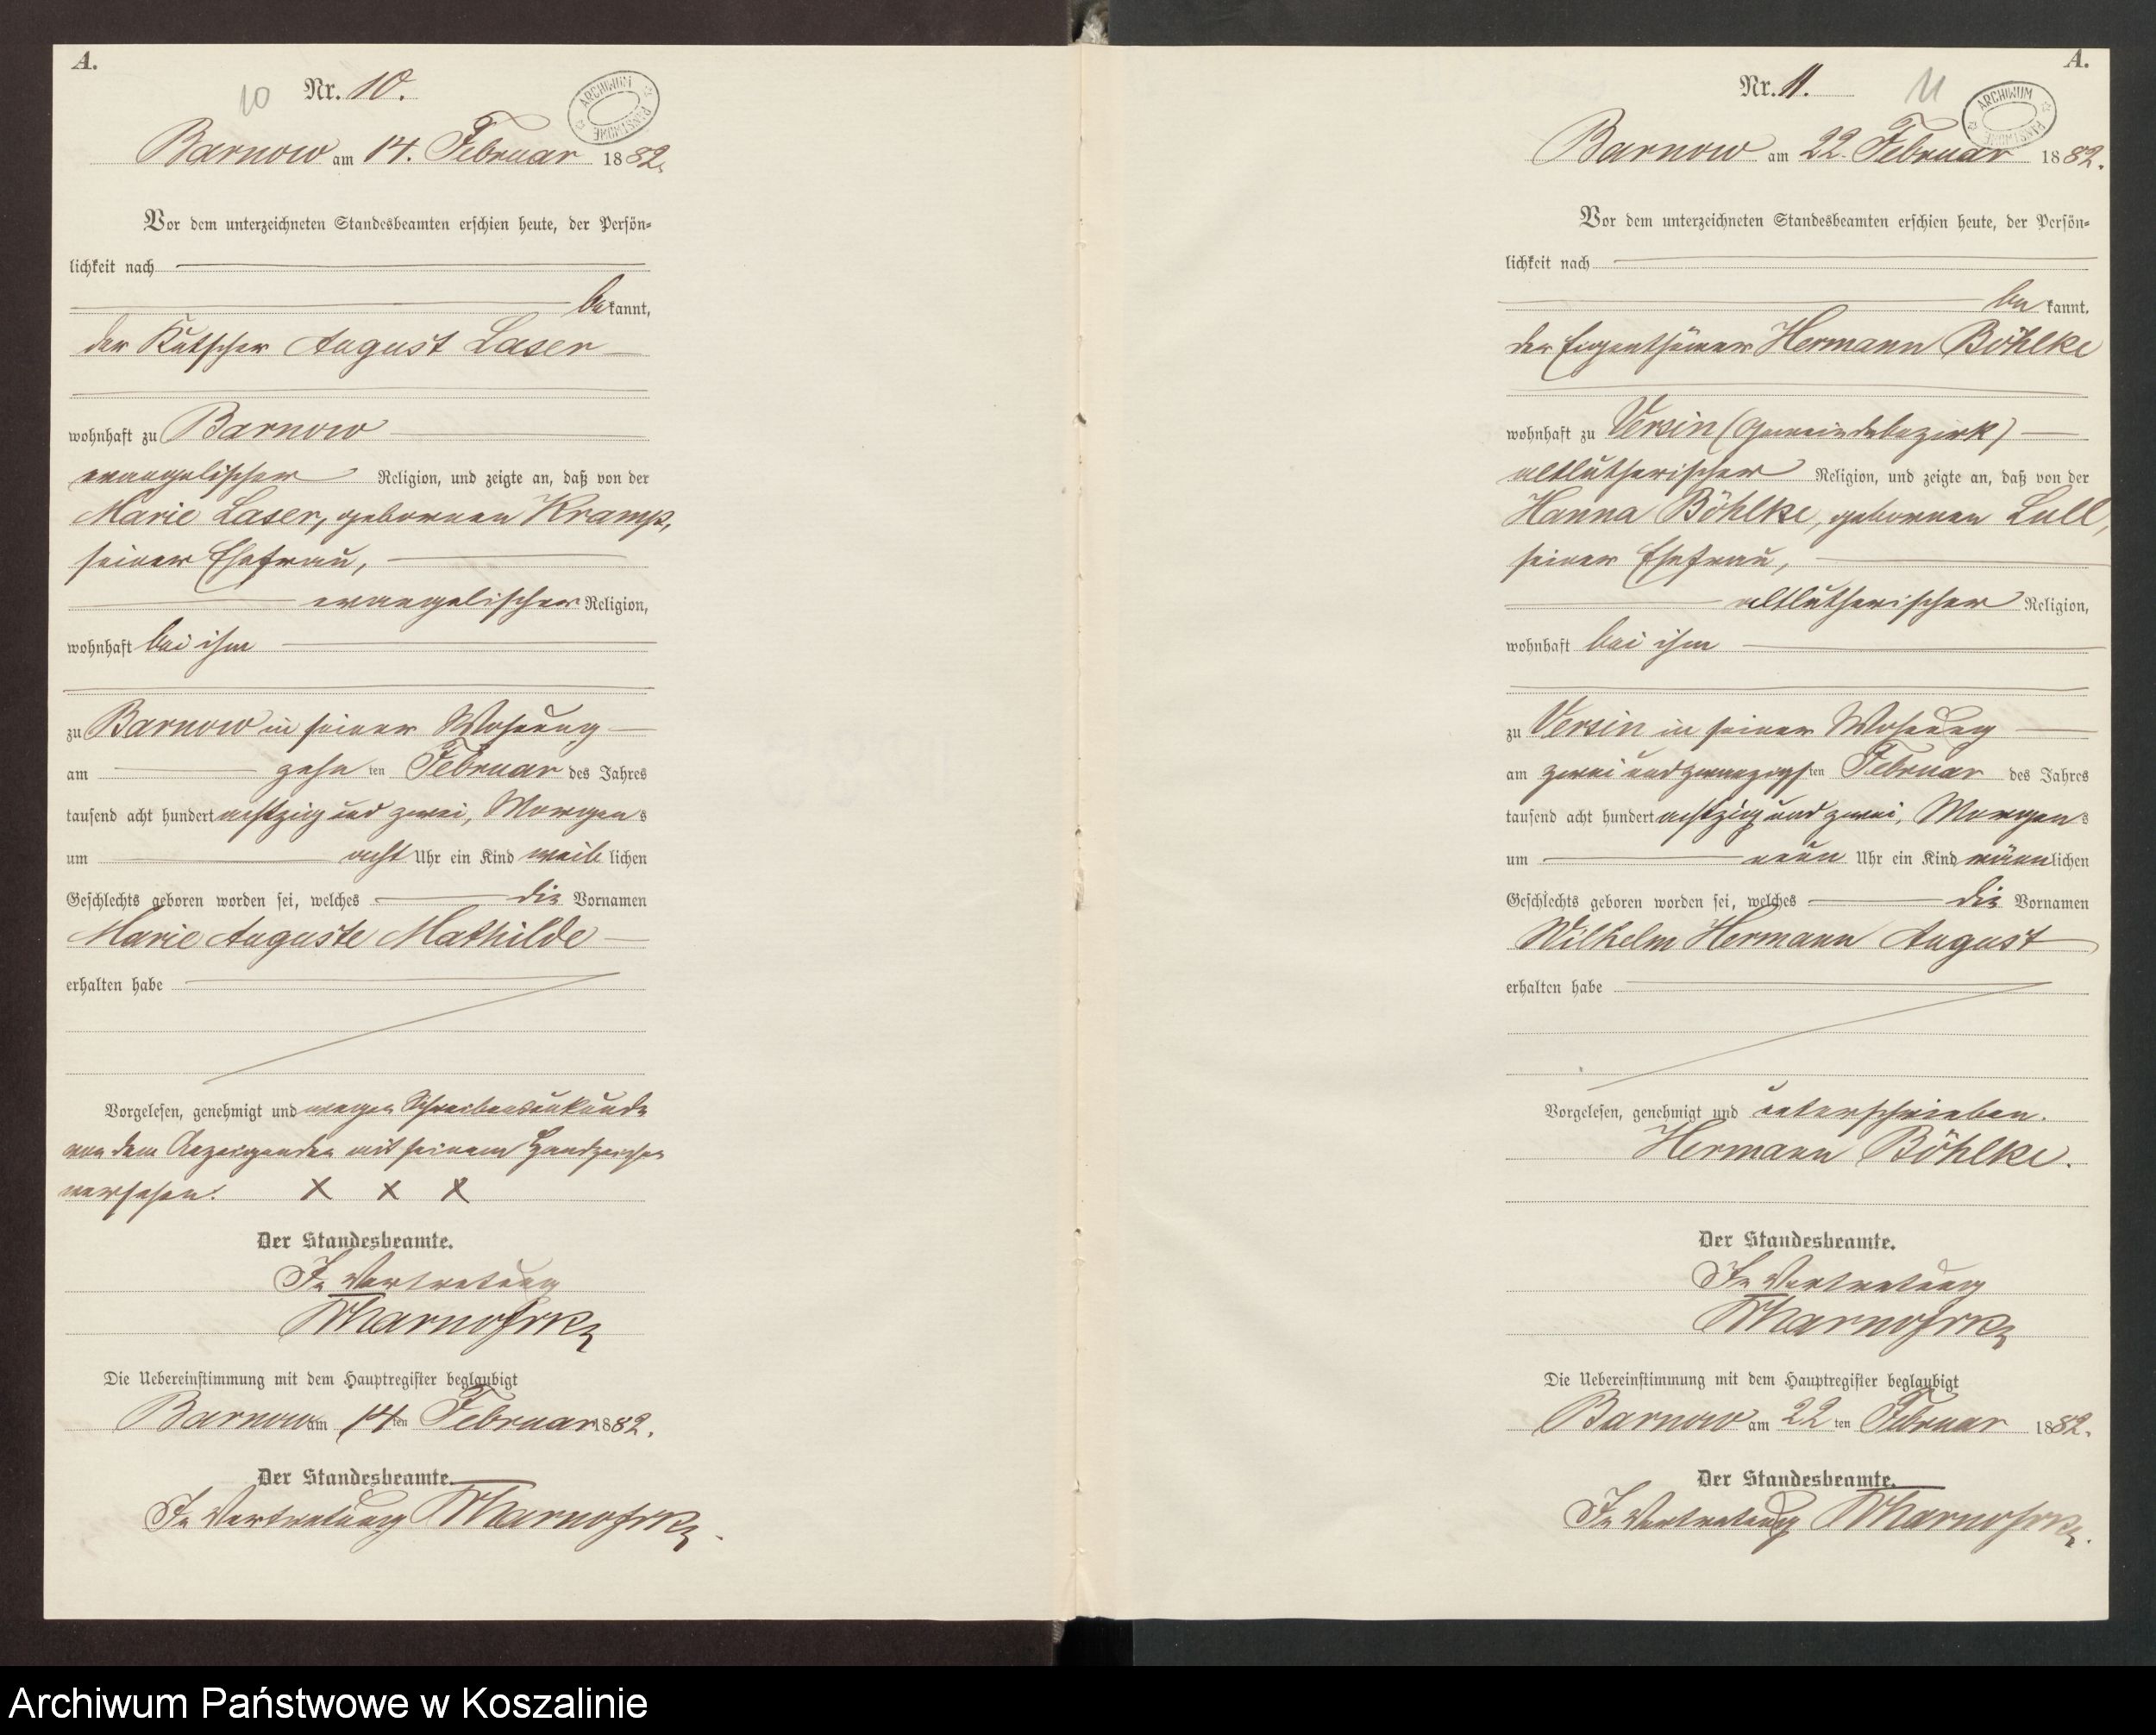 A.
10
Nr. 10.
ARCHIWUM PAŃSTWOWE
Barnow am 14. Februar 1882.
Vor dem unterzeichneten Standesbeamten erschien heute, der Persön-
lichkeit nach
bekannt,
der Kutscher August Laser
wohnhaft zu Barnow
evangelischer Religion, und zeigte an, daß von der
Marie Laser, gebornen Kramp,
seiner Ehefrau,
evangelischer Religion,
wohnhaft bei ihm
zu Barnow in seiner Wohnung
am zehn ten Februar des Jahres
tausend acht hundert achtzig und zwei, Morgens
um acht Uhr ein Kind weiblichen
Geschlechts geboren worden sei, welches die Vornamen
Marie Auguste Mathilde
erhalten habe
Vorgelesen, genehmigt und wegen Schreibensunkunde
von dem Anzeigenden mit seinem Handzeichen
versehen. X X X
Der Standesbeamte.
In Vertretung
Die Uebereinstimmung mit dem Hauptregister beglaubigt
Barnow am 14ten Februar 1882.
Der Standesbeamte.
In Vertretung
A.
Nr. 11.
11
ARCHIWUM PAŃSTWOWE
Barnow am 22. Februar 1882.
Vor dem unterzeichneten Standesbeamten erschien heute, der Persön-
lichkeit nach
be kannt,
der Eigenthümer Hermann Böhlke
wohnhaft zu Versin (Gemeindebezirk)
altlutherischer Religion, und zeigte an, daß von der
Hanna Böhlke, gebornen Lull,
seiner Ehefrau,
altlutherischer Religion,
wohnhaft bei ihm
zu Versin in seiner Wohnung
am zwei und zwanzigsten Februar des Jahres
tausend acht hundert achtzig und zwei, Morgens
um neun Uhr ein Kind männlichen
Geschlechts geboren worden sei, welches die Vornamen
Wilhelm Hermann August
erhalten habe
Vorgelesen, genehmigt und unterschrieben.
Hermann Böhlke.
Der Standesbeamte.
In Vertretung
Die Uebereinstimmung mit dem Hauptregister beglaubigt
Barnow am 22 ten Februar 1882.
Der Standesbeamte.
In Vertretung
Archiwum Państwowe w Koszalinie